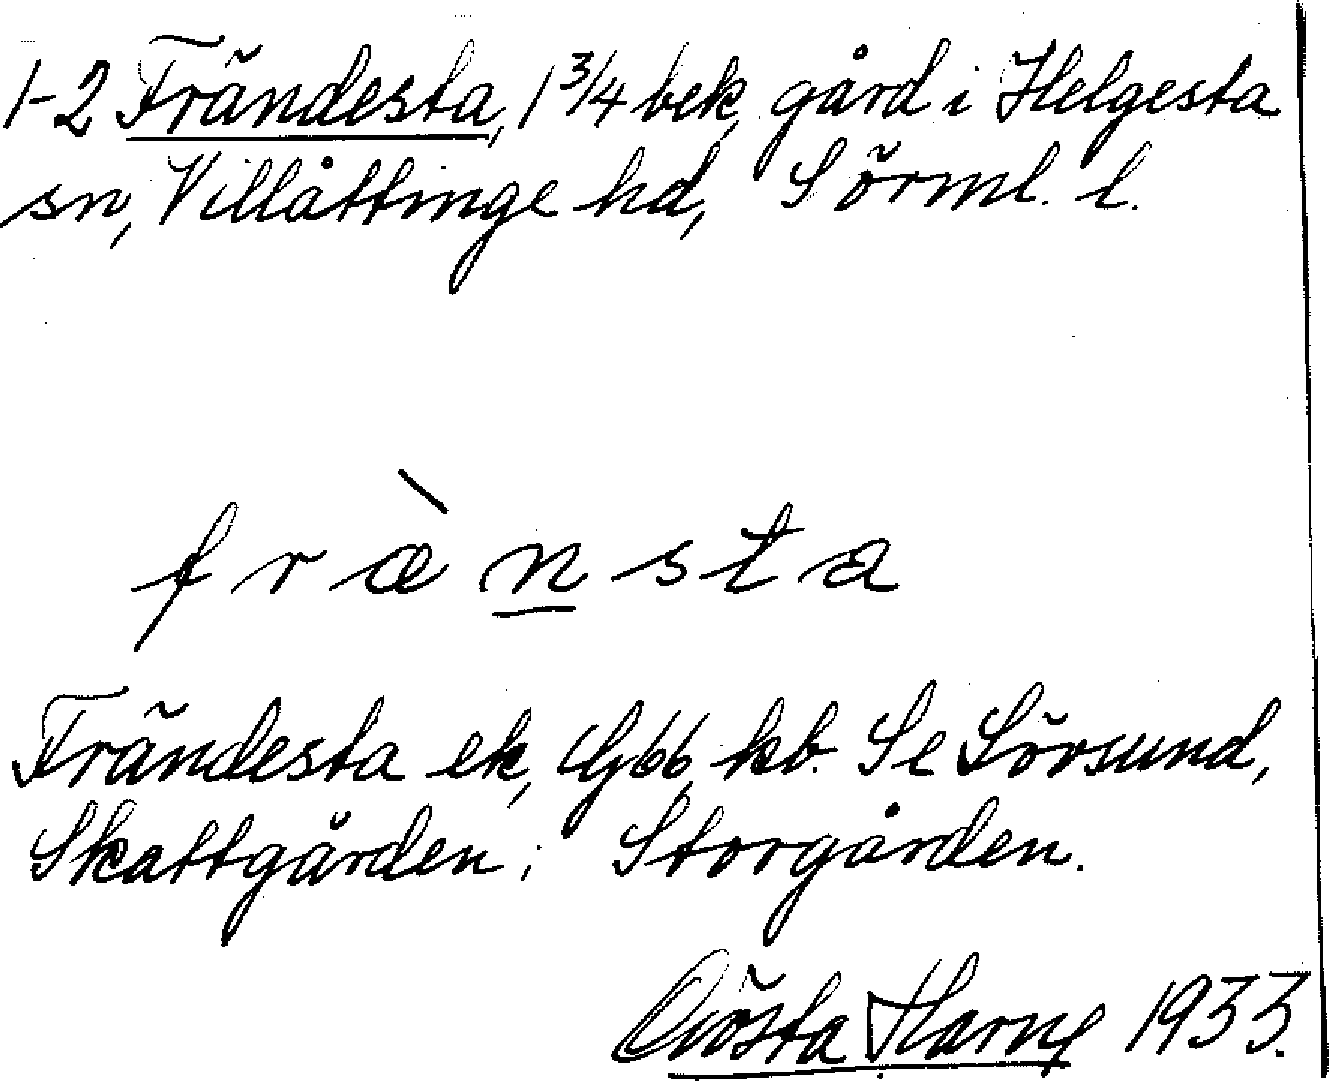 1-2 Frändesta, 1 3/4 bek, gård i Helgesta
sn, Villåttinge hd, Sörml. l.
fræ̀n̲sta
Frändesta ek, G66, kb. Se Sörsund,
Skattgården; Storgården.
Gösta Harne 1933.